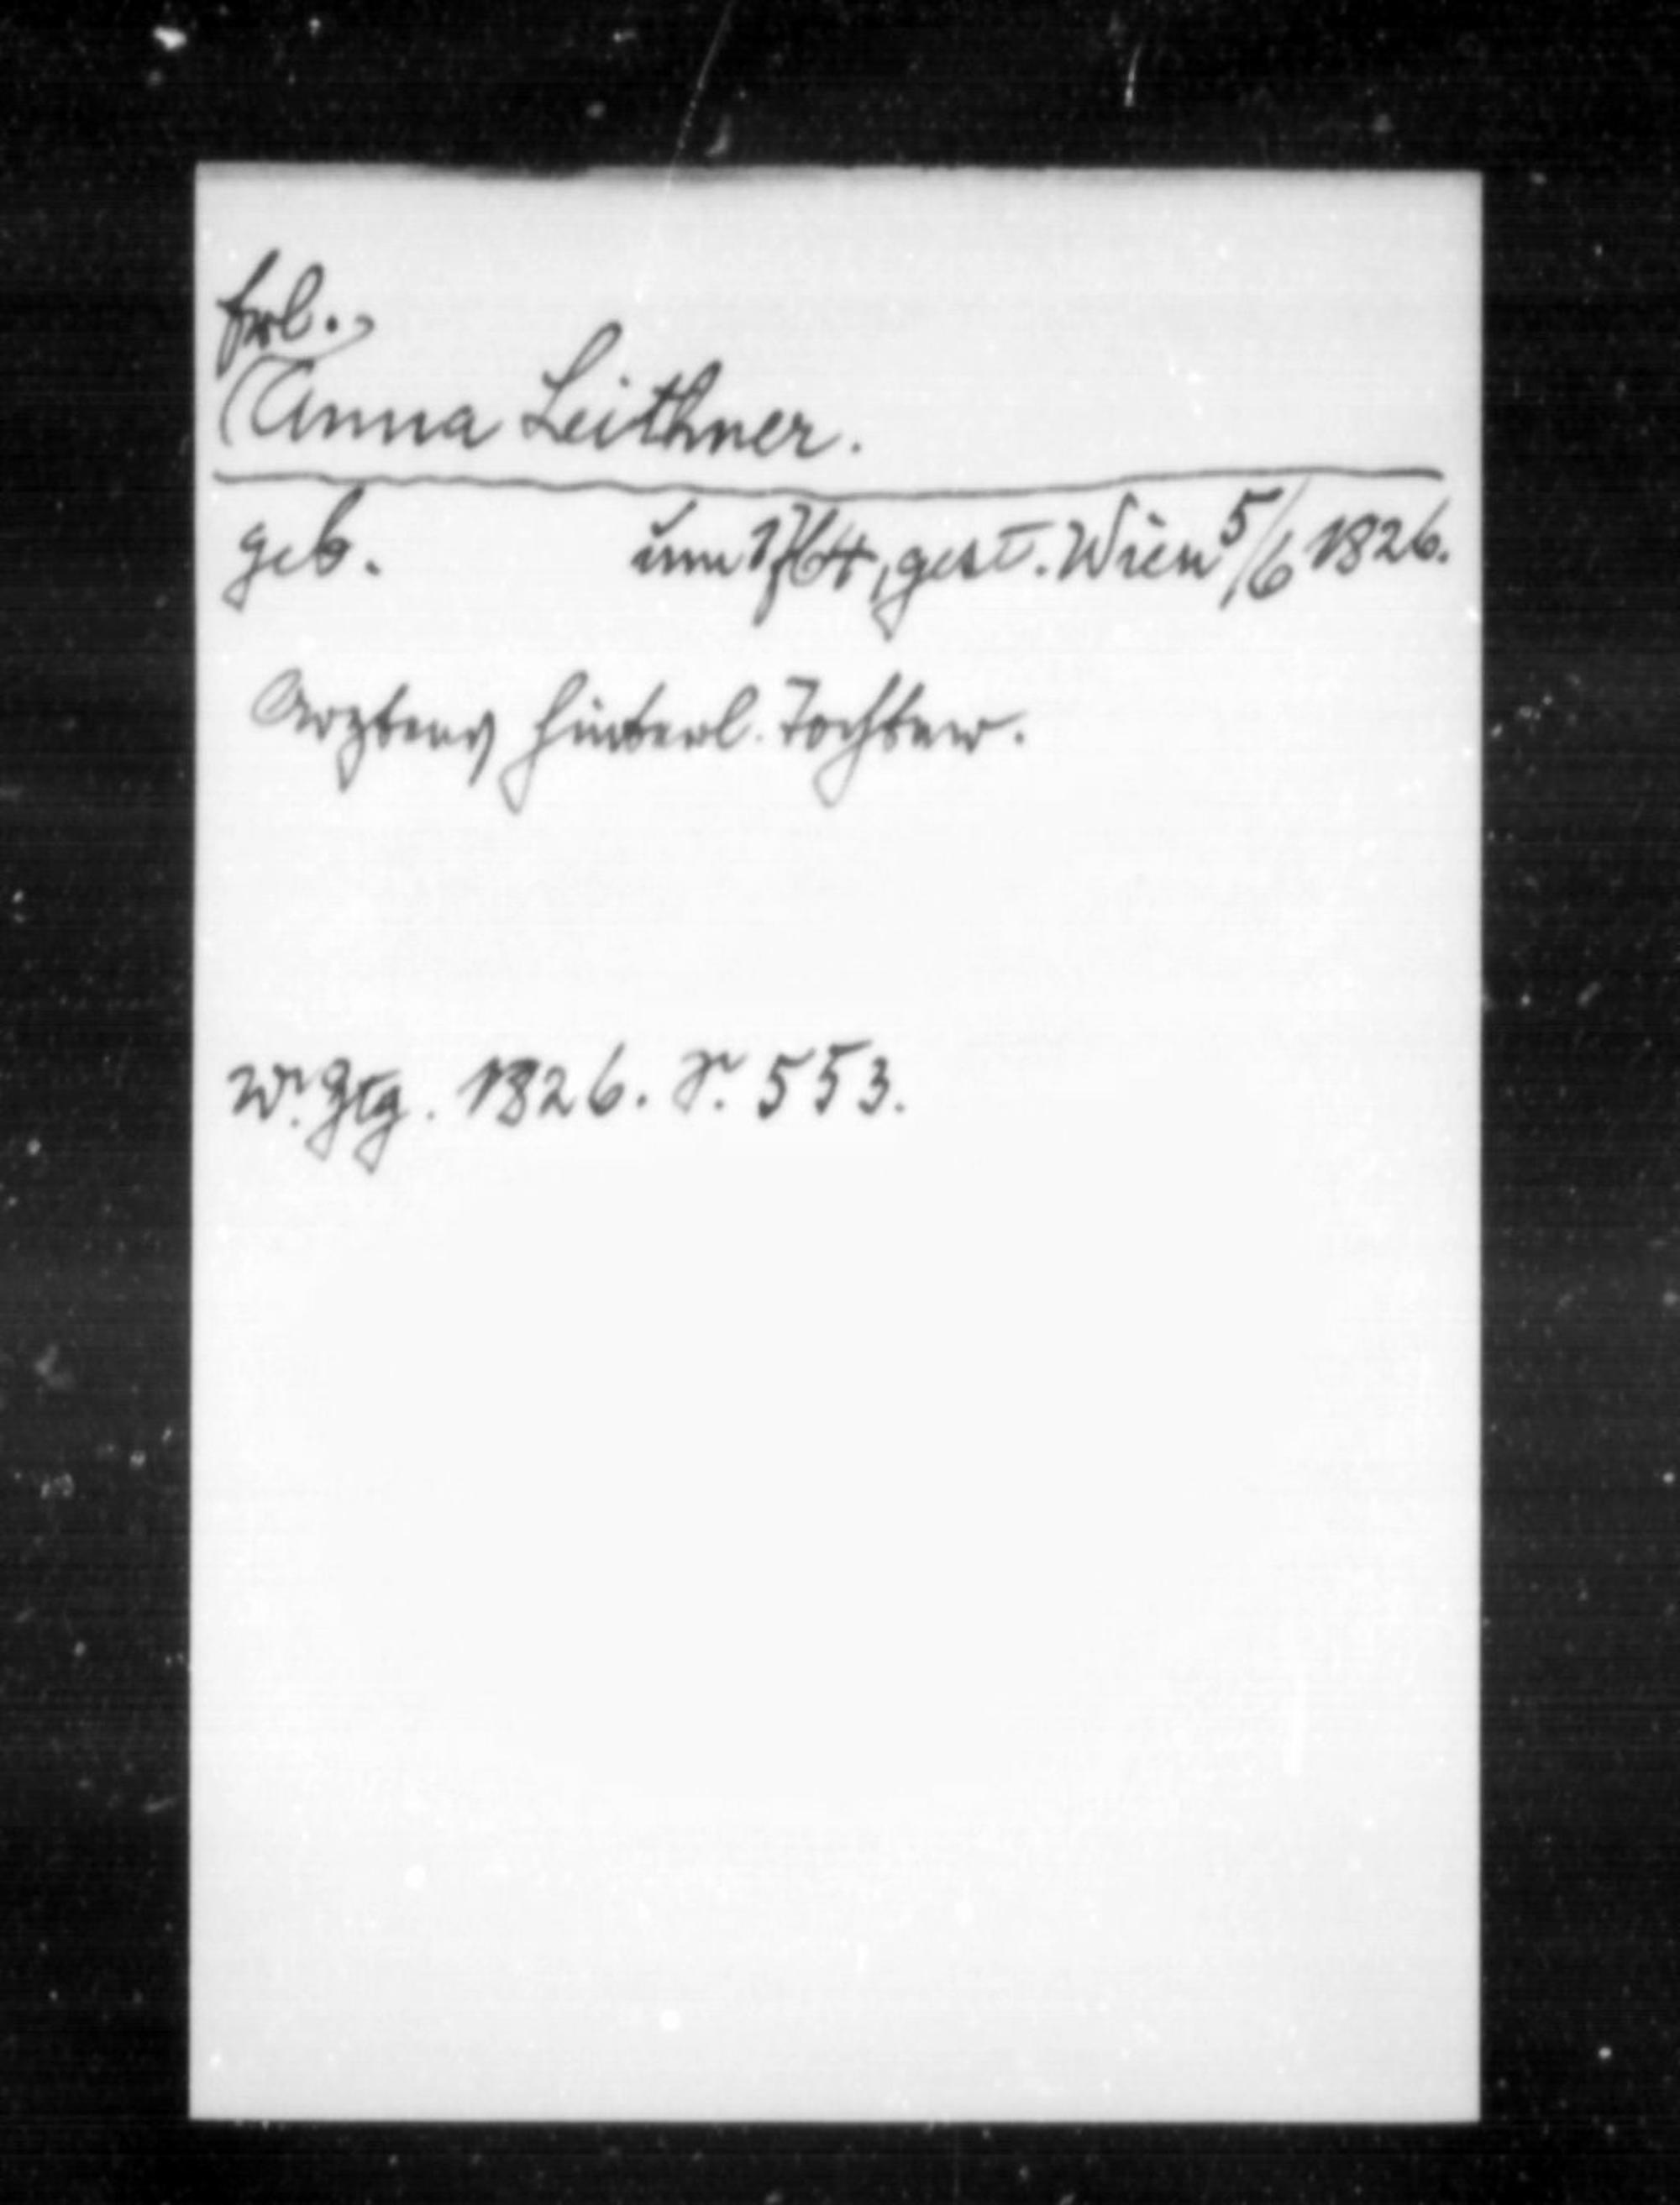 Frl.,
Anna Leithner.
geb. um 1764, gest. Wien 5/6 1826.
Arztens hinterl. Tochter.
Wr. Ztg. 1826. S. 553.